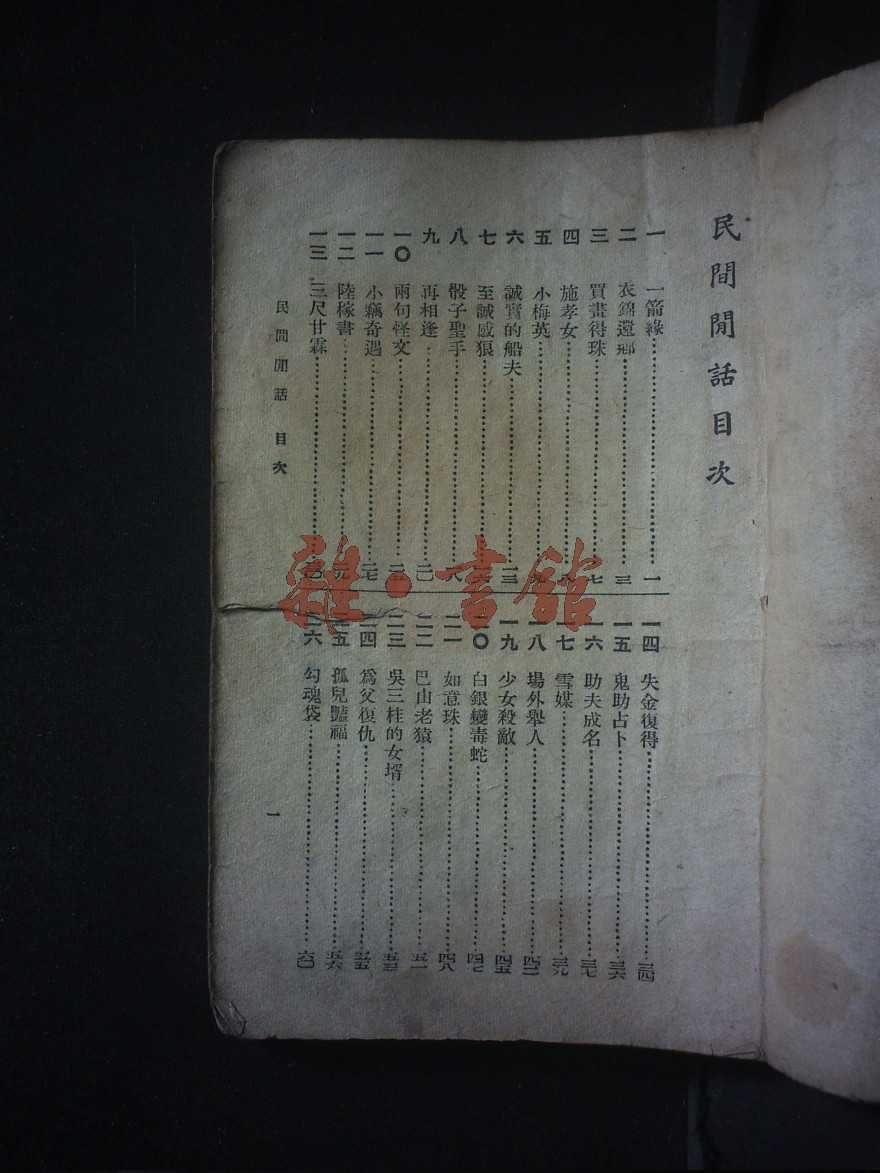 民間閒話目次
一 一箭緣 一
二 衣錦還鄉 三
三 買畫得珠 七
四 施孝女
五 小梅英
六 誠實的船夫 一三
七 至誠感狼
八 骰子聖手 一八
九 再相逢 二〇
一〇 兩句怪文 二五
一一 小竊奇遇 二七
一二 陸稼書 二九
一三 三尺甘霖
一四 失金復得 三四
一五 鬼助占卜 三六
一六 助夫成名 三七
一七 雪媒 三九
一八 場外舉人 四二
一九 少女殺敵 四五
二〇 白銀變毒蛇 四七
二一 如意珠 四八
二二 巴山老猿 五一
二三 吳三桂的女壻 五三
二四 爲父復仇 五五
二五 孤兒豔福 五六
二六 勾魂袋 六〇
民間閒話 目次
一
雜·書館